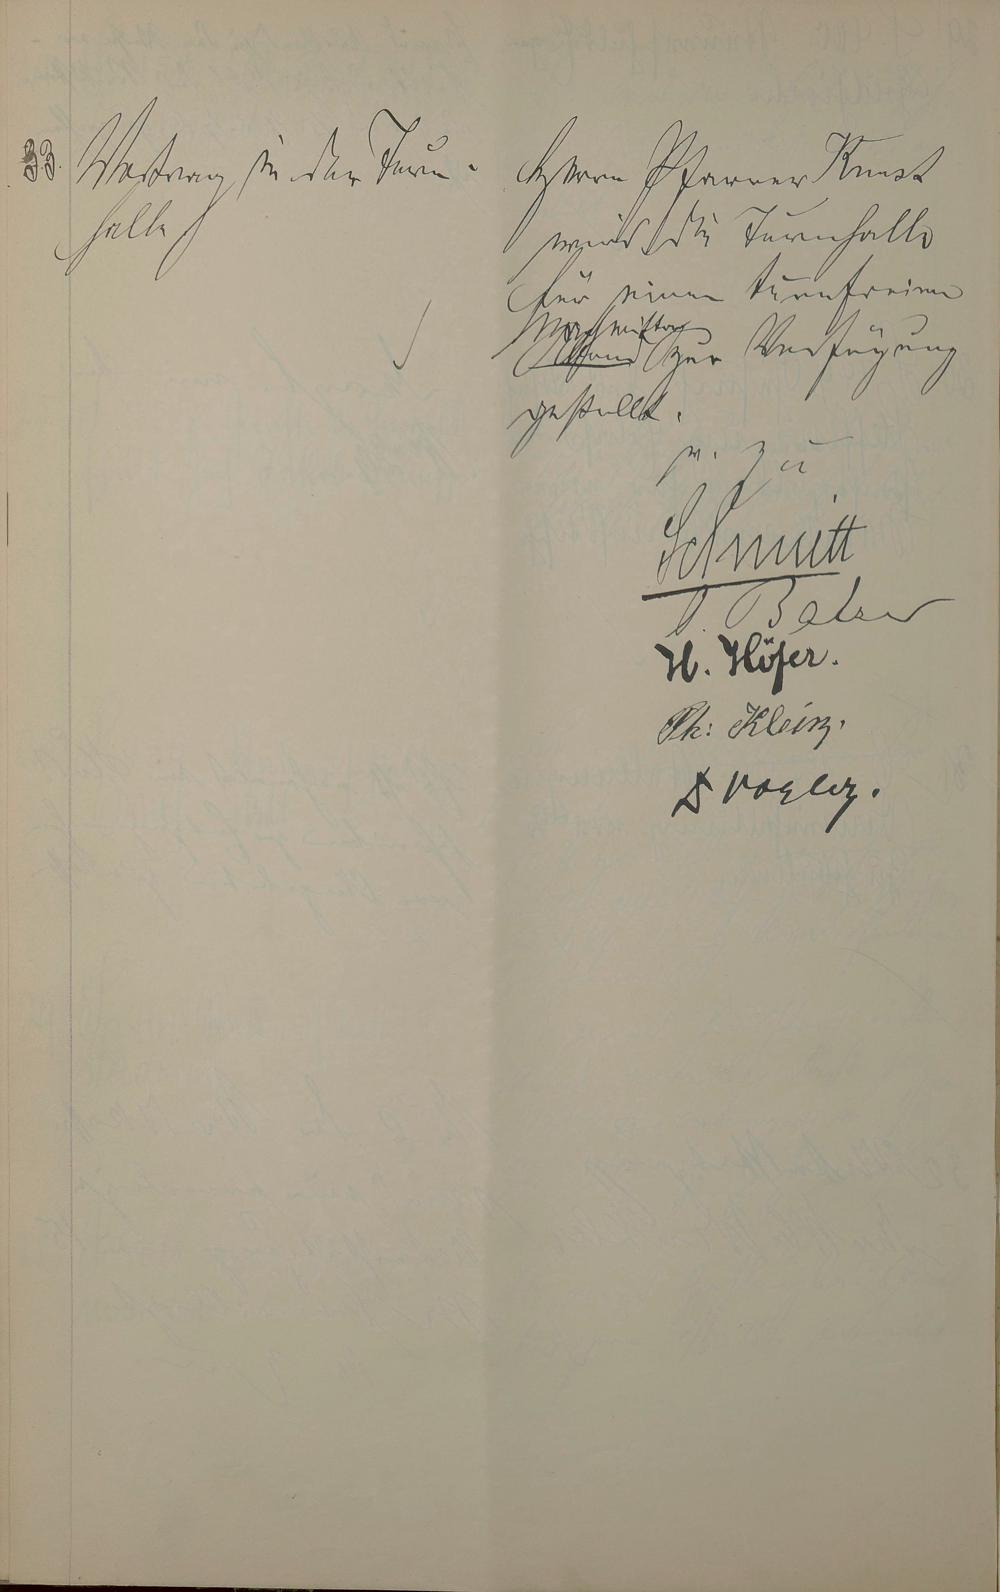 33. Vortrag in der Turn-
halle
Herrn Pfarrer Kunst
wird die Turnhalle
für einen turnfreien
Nachmittag
Abend zur Verfügung
gestellt.
v. g. u.
Schmitt
Balzer
H. Höfer.
Ph: Klein.
D Vogler.